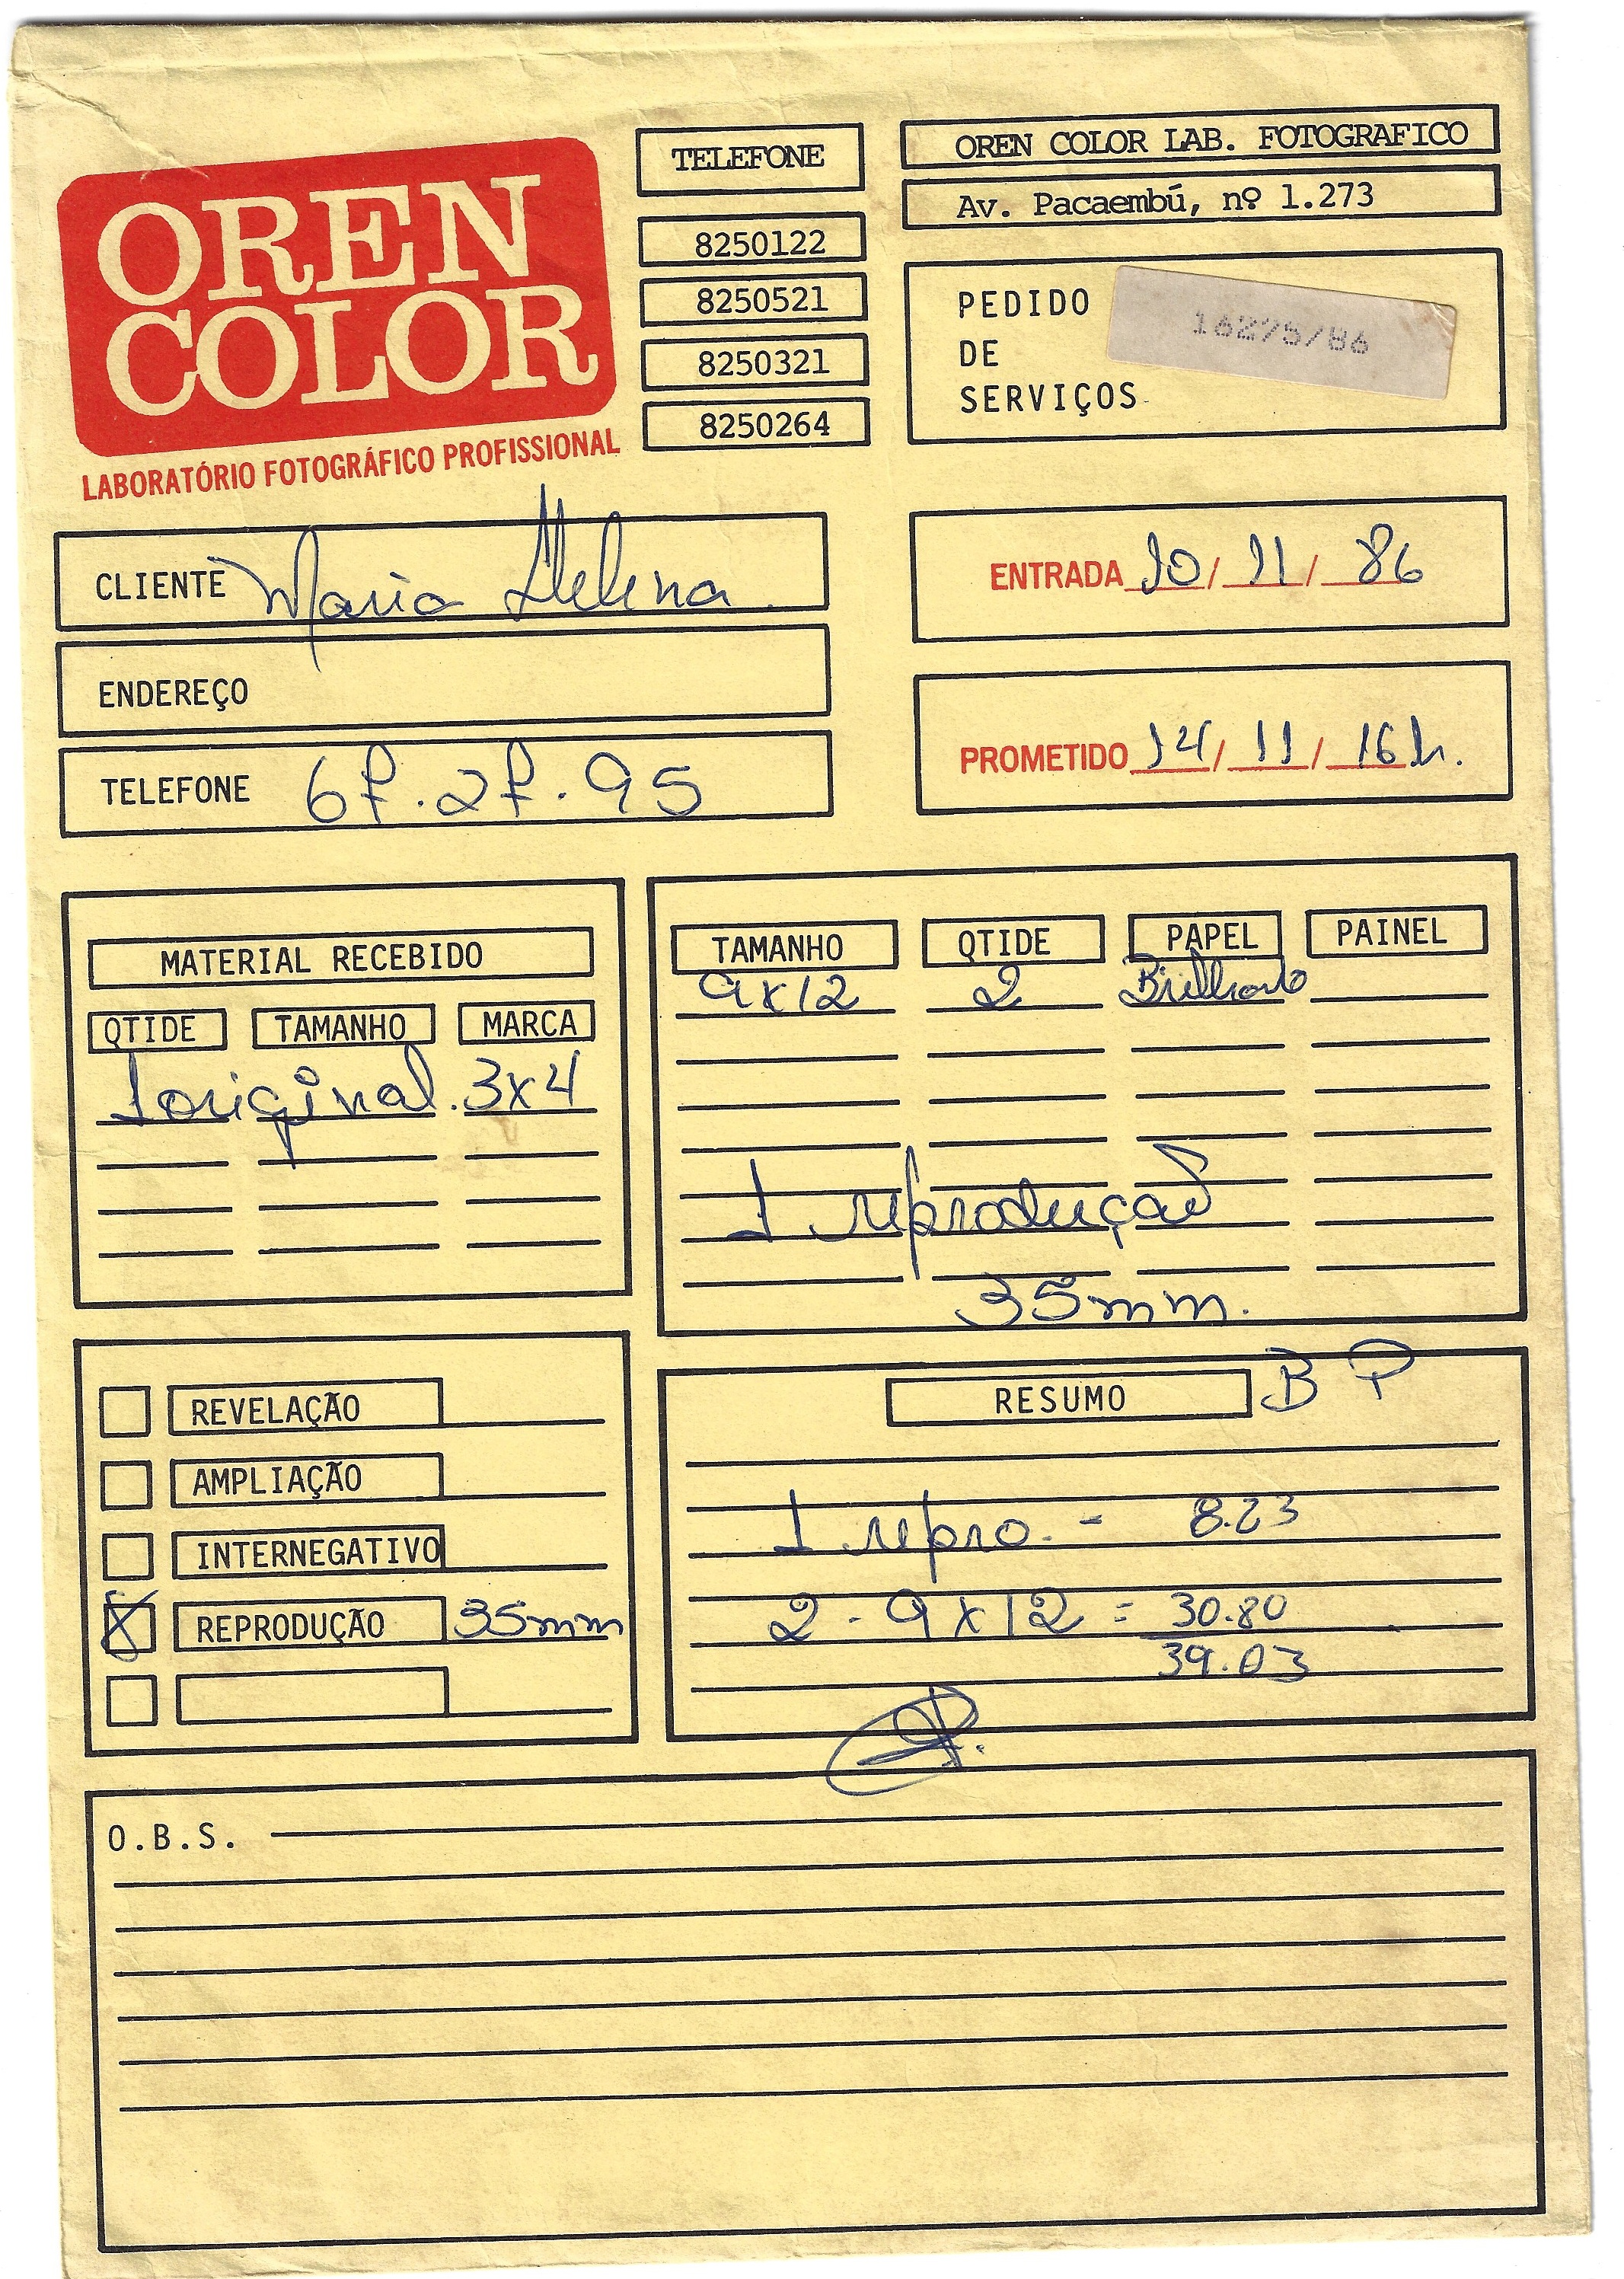 OREN
COLOR
LABORATÓRIO FOTOGRÁFICO PROFISSIONAL
TELEFONE
8250122
8250521
8250321
8250264
OREN COLOR LAB. FOTOGRAFICO
Av. Pacaembú, nº 1.273
PEDIDO
DE
SERVIÇOS
16275/86
CLIENTE Maria Helena
ENDEREÇO
TELEFONE 67.27.95
ENTRADA 10/11/86
PROMETIDO 14/11/16h.
MATERIAL RECEBIDO
QTIDE TAMANHO MARCA
1 original. 3x4
TAMANHO QTIDE PAPEL PAINEL
9x12 2 Brilhante
1 reprodução
35mm.
REVELAÇÃO
AMPLIAÇÃO
INTERNEGATIVO
X REPRODUÇÃO 35mm
RESUMO B P
1 repro. - 8.23
2 - 9x12 = 30.80
39.03
O.B.S.